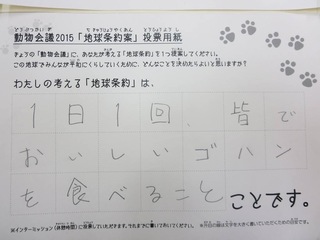 動物会議2015「地球条約案」投票用紙
きょうの「動物会議」に、あなたが考える「地球条約」を1つ提案してください。
この地球でみんなが平和にくらしていくために、どんなことを決めたらよいと思いますか?
わたしの考える「地球条約」は、
1日1回、皆で
おいしいゴハン
を食べること ことです。
※インターミッション(休憩時間)に投票していただきます。それまでに書いておいてください。